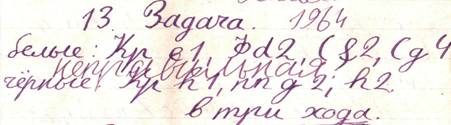 13. Задача. 1964
белые: Кр e1, Фd2, С f2, Сg4
неправильная
чёрные: Кр h1, пп g2, h2.
в три хода.